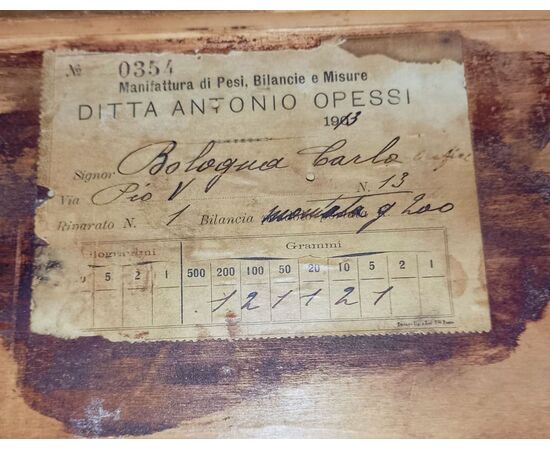 № 0354
Manifattura di Pesi, Bilancie e Misure
DITTA ANTONIO OPESSI
1913
Signor Bologna Carlo
Via Pio V N. 13
Riparato N. 1 Bilancia g 200
ilogrammi Grammi
5 2 1 500 200 100 50 20 10 5 2 1
1 2 1 1 2 1